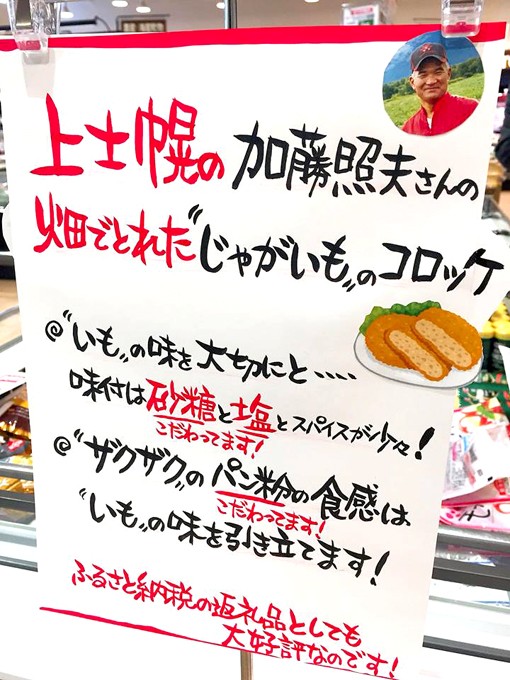 上士幌の加藤照夫さんの
畑でとれた〝じゃがいも〟のコロッケ
@〝いも〟の味を大切にと‥‥‥
味付は砂糖と塩とスパイスが少々!
こだわってます!
@〝ザクザク〟のパン粉の食感は
こだわってます!
〝いも〟の味を引き立てます!
ふるさと納税の返礼品としても
大好評なのです!